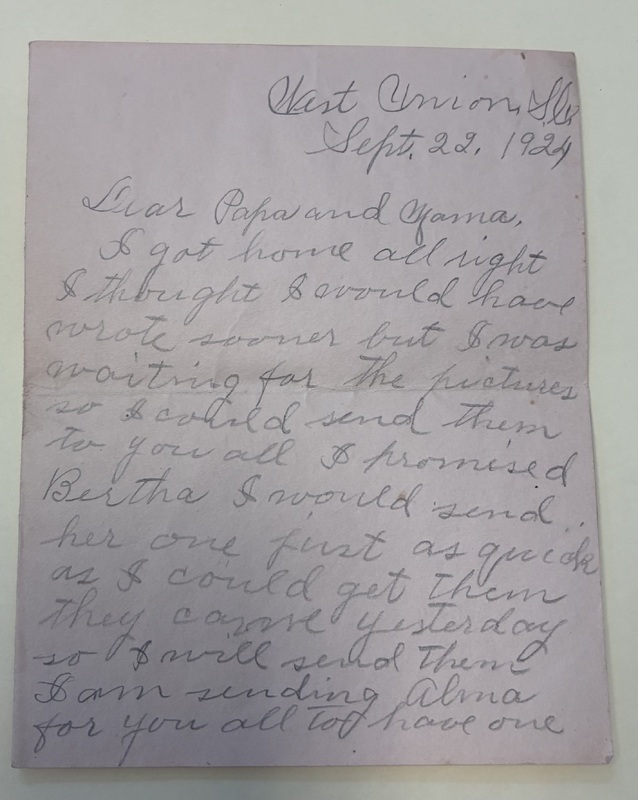 West Union, Ills
Sept. 22, 1924
Dear Papa and Mama,
I got home all right
I thought I would have
wrote sooner but I was
waiting for the pictures
so I could send them
to you all I promised
Bertha I would send
her one just as quick
as I could get them
they came yesterday
so I will send them
I am sending Alma
for you all to have one